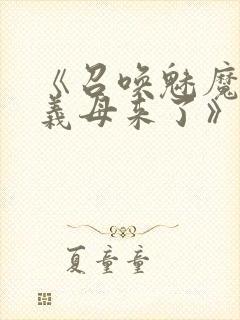 《召唤魅魔
義母来了》
夏童童